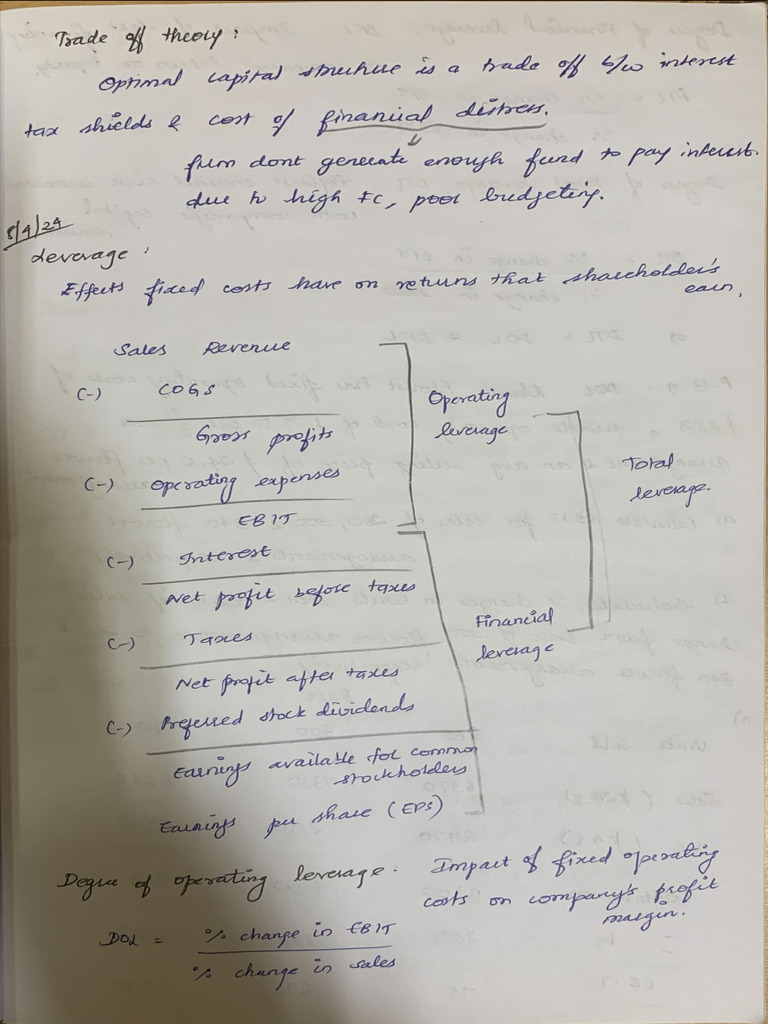 Trade off theory :
Optimal capital structure is a trade off b/w interest
tax shields & cost of financial distress.
firm dont generate enough fund to pay interest.
due to high FC, poor budgeting.
8/4/24
Leverage :
Effects fixed costs have on returns that shareholder's
earn.
Sales Revenue
(-) COGS
Gross profits
(-) Operating expenses
EBIT
(-) Interest
Net profit before taxes
(-) Taxes
Net profit after taxes
(-) Preferred stock dividends
Earnings available for common
stockholders
Earnings per share (EPS)
Operating
leverage
Financial
leverage
Total
leverage.
Degree of operating leverage : Impact of fixed operating
costs on company's profit
margin.
DOL = % change in EBIT
% change in sales